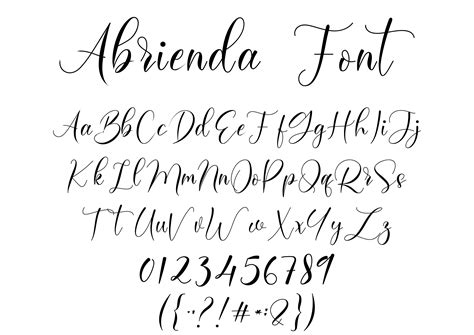 Abrienda Font
AaBbCcDdEeFfGgHhIiJj
KkLlMmNnOoPpQqRrSs
TtUuVvWwXxYyZz
0123456789
({··?!#*:&})